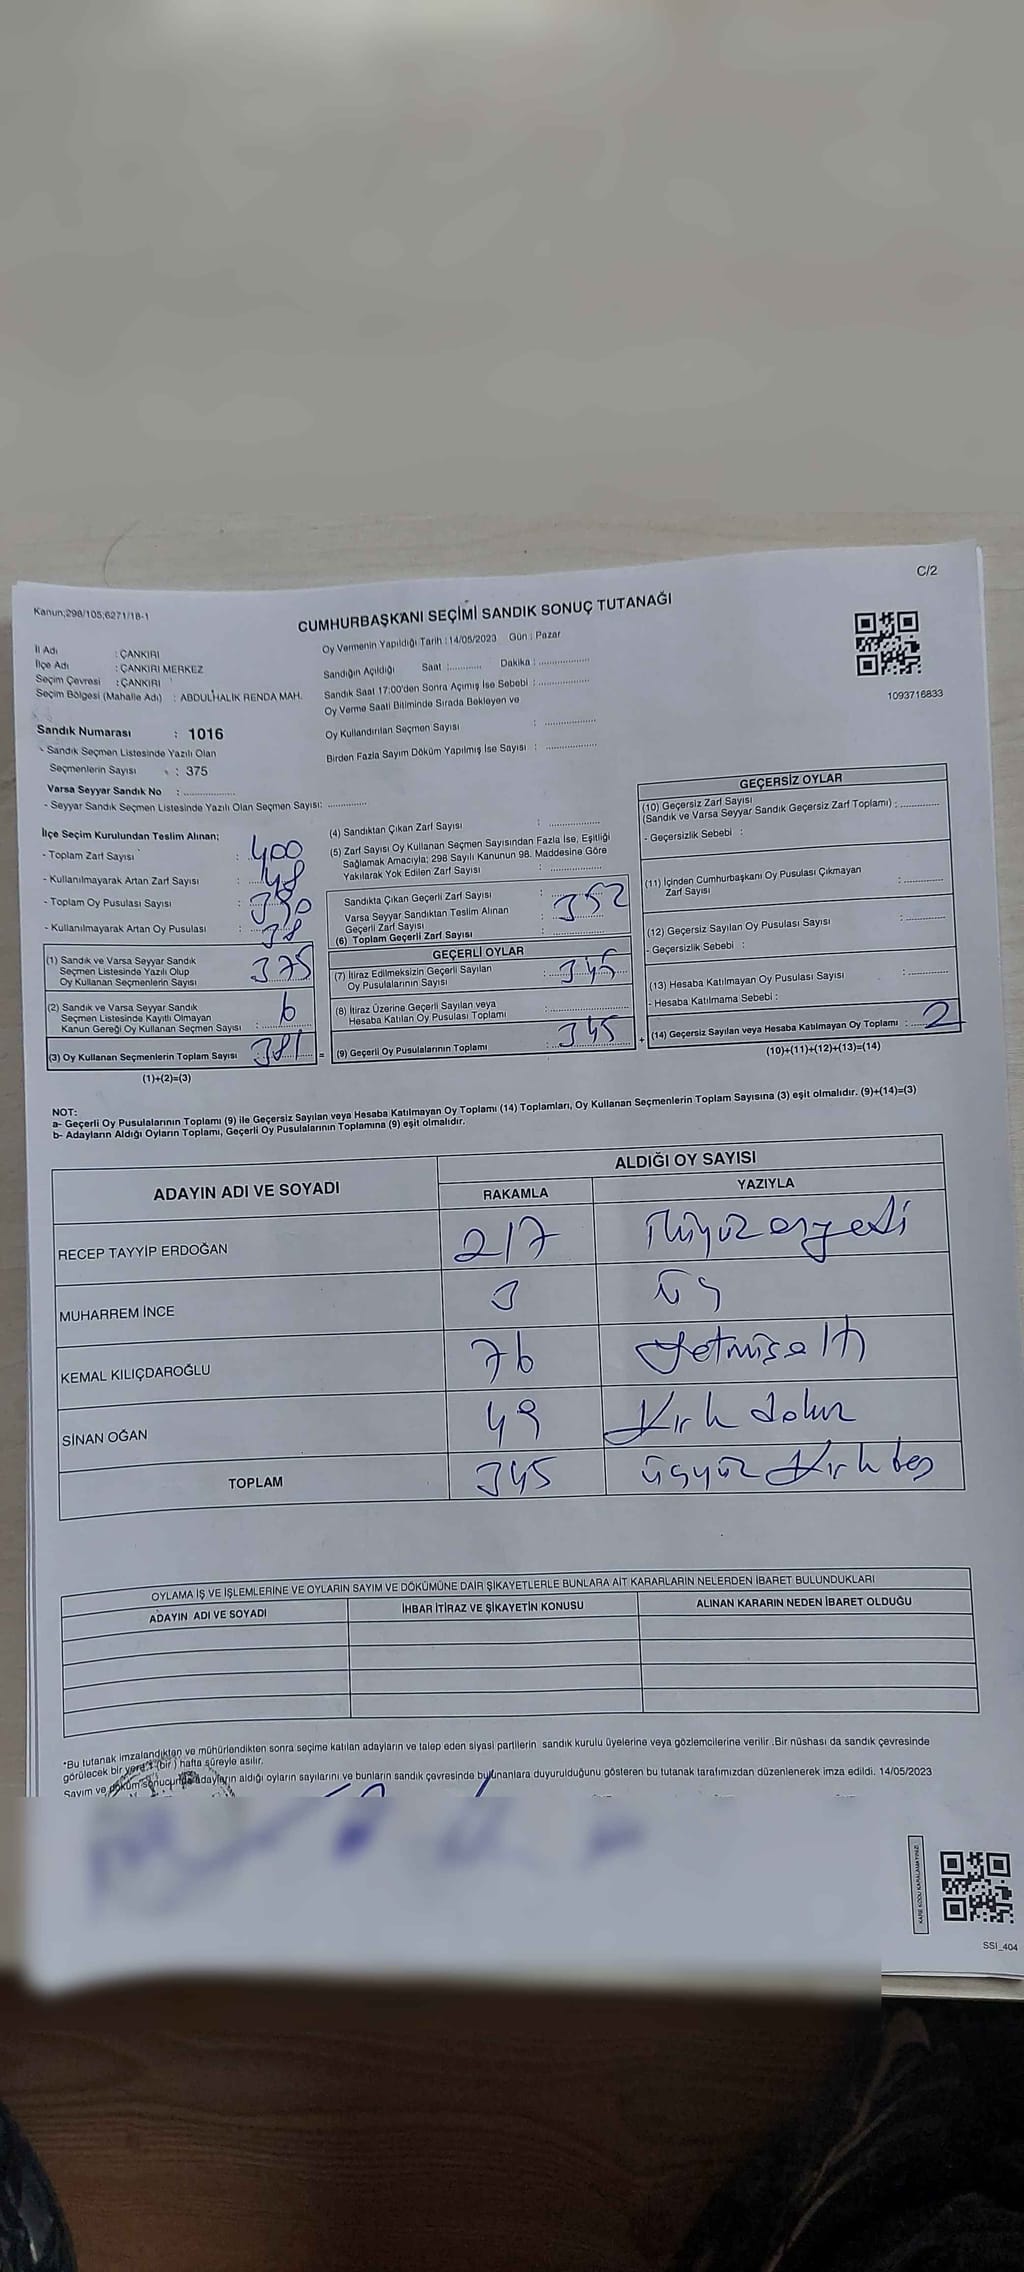 C/2
Kanun;298/105;6271/18-1
CUMHURBAŞKANI SEÇİMİ SANDIK SONUÇ TUTANAĞI
İl Adı : ÇANKIRI
İlçe Adı : ÇANKIRI MERKEZ
Seçim Çevresi : ÇANKIRI
Seçim Bölgesi (Mahalle Adı) : ABDULHALİK RENDA MAH.
Sandık Numarası : 1016
- Sandık Seçmen Listesinde Yazılı Olan
Seçmenlerin Sayısı : 375
Varsa Seyyar Sandık No : ...............
- Seyyar Sandık Seçmen Listesinde Yazılı Olan Seçmen Sayısı: ............
Oy Vermenin Yapıldığı Tarih : 14/05/2023 Gün : Pazar
Sandığın Açıldığı Saat :........... Dakika : ...............
Sandık Saat 17:00'den Sonra Açımış İse Sebebi : ...............
Oy Verme Saati Bitiminde Sırada Bekleyen ve
Oy Kullandırılan Seçmen Sayısı : ...............
Birden Fazla Sayım Döküm Yapılmış İse Sayısı : ...............
1093716833
İlçe Seçim Kurulundan Teslim Alınan;
- Toplam Zarf Sayısı : 400
- Kullanılmayarak Artan Zarf Sayısı : 48
- Toplam Oy Pusulası Sayısı :
- Kullanılmayarak Artan Oy Pusulası : 38
(1) Sandık ve Varsa Seyyar Sandık
Seçmen Listesinde Yazılı Olup
Oy Kullanan Seçmenlerin Sayısı 375
(2) Sandık ve Varsa Seyyar Sandık
Seçmen Listesinde Kayıtlı Olmayan
Kanun Gereği Oy Kullanan Seçmen Sayısı : 6
(3) Oy Kullanan Seçmenlerin Toplam Sayısı 381 =
(1)+(2)=(3)
(4) Sandıktan Çıkan Zarf Sayısı : ...............
(5) Zarf Sayısı Oy Kullanan Seçmen Sayısından Fazla İse, Eşitliği
Sağlamak Amacıyla; 298 Sayılı Kanunun 98. Maddesine Göre
Yakılarak Yok Edilen Zarf Sayısı : ...............
Sandıkta Çıkan Geçerli Zarf Sayısı :
Varsa Seyyar Sandıktan Teslim Alınan
Geçerli Zarf Sayısı : 352
(6) Toplam Geçerli Zarf Sayısı : ...............
GEÇERLİ OYLAR
(7) İtiraz Edilmeksizin Geçerli Sayılan
Oy Pusulalarının Sayısı : 345
(8) İtiraz Üzerine Geçerli Sayılan veya
Hesaba Katılan Oy Pusulası Toplamı : ...............
(9) Geçerli Oy Pusulalarının Toplamı : 345 +
GEÇERSİZ OYLAR
(10) Geçersiz Zarf Sayısı
(Sandık ve Varsa Seyyar Sandık Geçersiz Zarf Toplamı) : ............
- Geçersizlik Sebebi :
(11) İçinden Cumhurbaşkanı Oy Pusulası Çıkmayan
Zarf Sayısı : ............
(12) Geçersiz Sayılan Oy Pusulası Sayısı : ............
- Geçersizlik Sebebi :
(13) Hesaba Katılmayan Oy Pusulası Sayısı : ............
- Hesaba Katılmama Sebebi :
(14) Geçersiz Sayılan veya Hesaba Katılmayan Oy Toplamı : 2
(10)+(11)+(12)+(13)=(14)
NOT:
a- Geçerli Oy Pusulalarının Toplamı (9) ile Geçersiz Sayılan veya Hesaba Katılmayan Oy Toplamı (14) Toplamları, Oy Kullanan Seçmenlerin Toplam Sayısına (3) eşit olmalıdır. (9)+(14)=(3)
b- Adayların Aldığı Oyların Toplamı, Geçerli Oy Pusulalarının Toplamına (9) eşit olmalıdır.
ADAYIN ADI VE SOYADI ALDIĞI OY SAYISI
RAKAMLA YAZIYLA
RECEP TAYYİP ERDOĞAN 217 ikiyüzonyedi
MUHARREM İNCE 3 üç
KEMAL KILIÇDAROĞLU 76 Yetmişaltı
SİNAN OĞAN 49 Kırk dokuz
TOPLAM 345 üçyüz Kırkbeş
OYLAMA İŞ VE İŞLEMLERİNE VE OYLARIN SAYIM VE DÖKÜMÜNE DAİR ŞİKAYETLERLE BUNLARA AİT KARARLARIN NELERDEN İBARET BULUNDUKLARI
ADAYIN ADI VE SOYADI İHBAR İTİRAZ VE ŞİKAYETİN KONUSU ALINAN KARARIN NEDEN İBARET OLDUĞU
*Bu tutanak imzalandıktan ve mühürlendikten sonra seçime katılan adayların ve talep eden siyasi partilerin sandık kurulu üyelerine veya gözlemcilerine verilir .Bir nüshası da sandık çevresinde
görülecek bir yere 1 (bir) hafta süreyle asılır.
Sayım ve döküm sonucunda adayların aldığı oyların sayılarını ve bunların sandık çevresinde bulunanlara duyurulduğunu gösteren bu tutanak tarafımızdan düzenlenerek imza edildi. 14/05/2023
KARE KODU KARALAMAYINIZ
SSİ_404